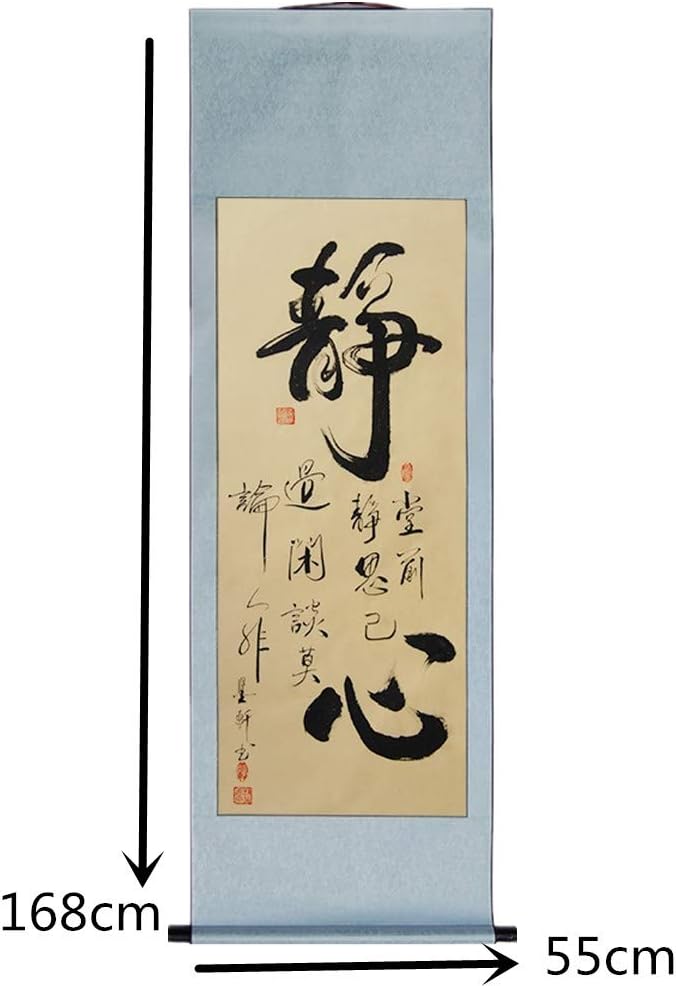 靜心
堂前
靜思己
過閑談莫
論人非
墨軒书
168cm
55cm